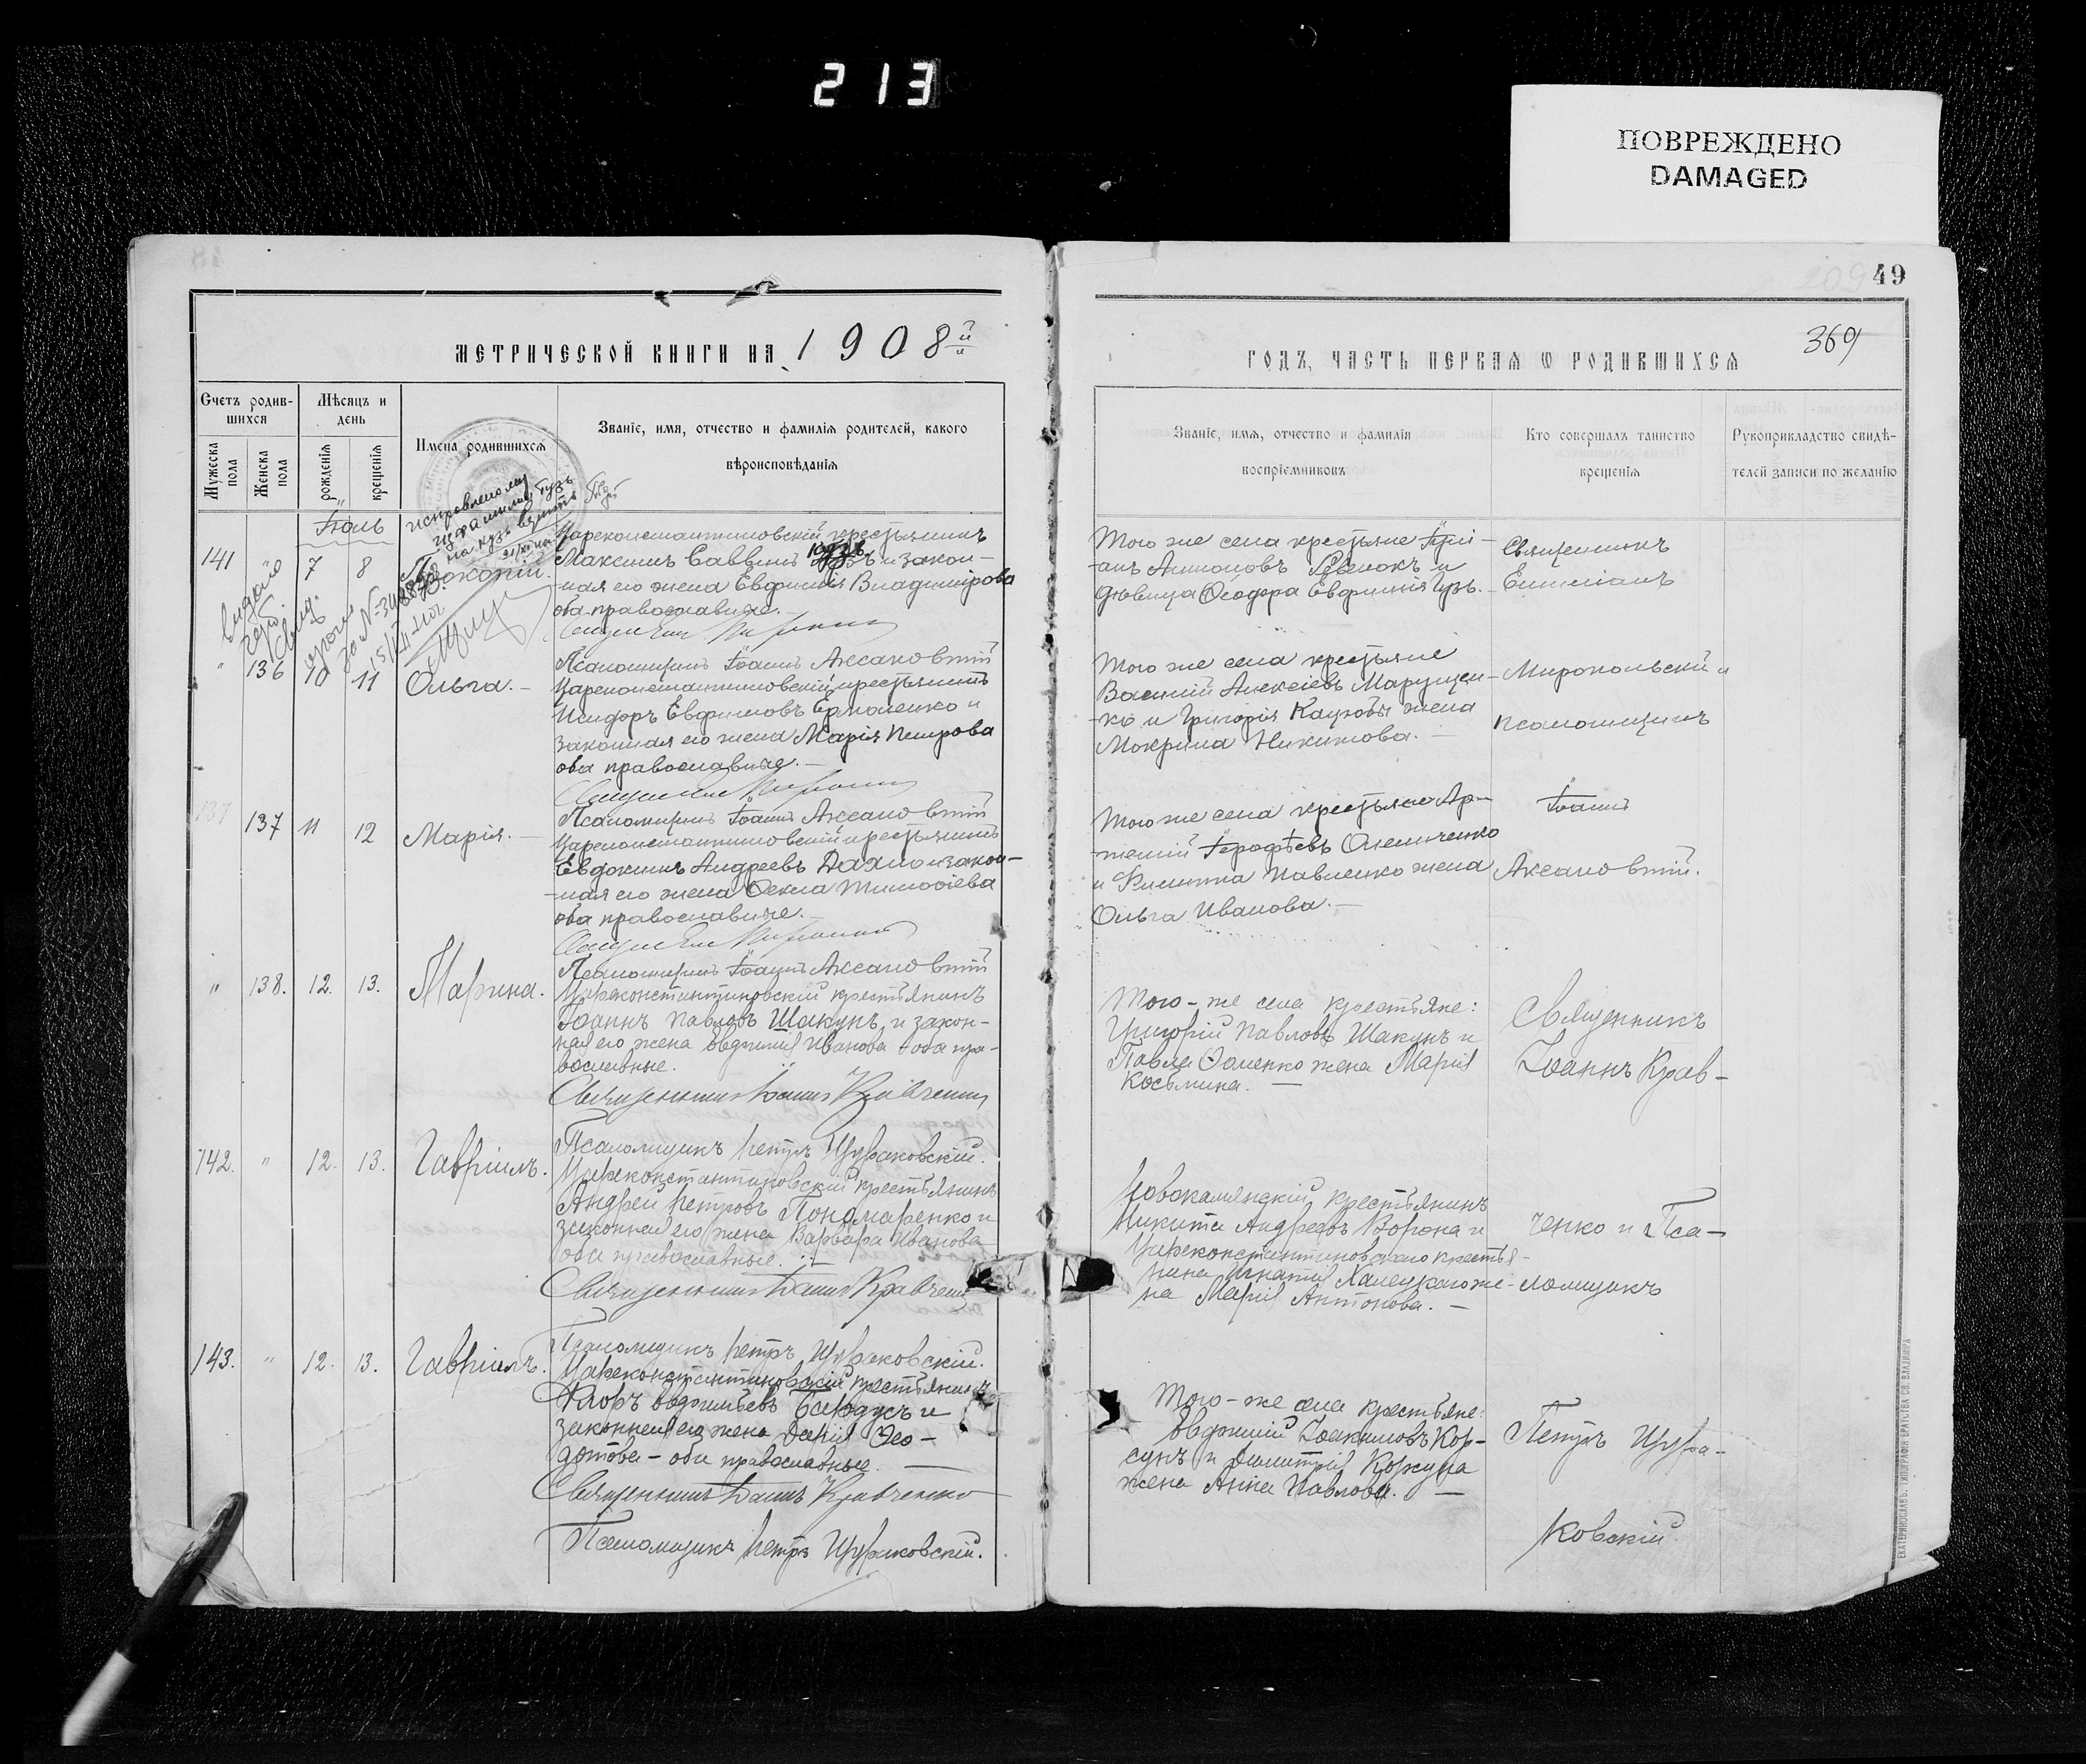 213
ПОВРЕЖДЕНО
DAMAGED
49
369
МЕТРИЧЕСКОЙ КНИГИ НА 1908й
ГОДЪ, ЧАСТЬ ПЕРВАЯ Ѡ РОДИВШИХСЯ
Счетъ родив-
шихся
Мужеска пола
Женска пола
Мѣсяцъ и
день
рожденія
крещенія
Имена родившихся
Званіе, имя, отчество и фамилія родителей, какого
вѣроисповѣданія
Званіе, имя, отчество и фамилія
воспріемниковъ
Кто совершалъ таинство
крещенія
Рукоприкладство свидѣ-
телей записи по желанію
Іюль
141 7 8 Прокопій.
Цареконстантиновскій крестьянинъ
Максимъ Саввинъ и закон-
ная его жена Евфимія Владимірова
оба православные.
Того же села крестьяне
дѣвица Ѳеодора Евфимія Гузъ.
Священникъ
" 136 10 11 Ольга.
Псаломщикъ Іоаннъ Аксановскій
Цареконстантиновскій крестьянинъ
Исидоръ Евфимовъ Ермоленко и
законная его жена Марія Петрова
оба православные.
Того же села крестьяне
Василій Алексіевъ Марущен-
ко и Григорія жена
Мокрина Никитова.
Миропольскій и
псаломщикъ
137 11 12 Марія.
Псаломщикъ Іоаннъ Аксановскій
Цареконстантиновскій крестьянинъ
Евдокимъ Андреевъ Дахно и закон-
ная его жена Ѳекла Тимоѳіева
оба православные.
Того же села крестьяне Ар-
темій Іерофѣевъ Олейниченко
и Филиппа Павленко жена
Ольга Иванова.
Іоаннъ
Аксановскій.
" 138. 12. 13. Марина.
Псаломщикъ Іоаннъ Аксановскій
Цареконстантиновскій крестьянинъ
Іоаннъ Павловъ Шакунъ, и закон-
ная его жена Евфимія Иванова оба пра-
вославные.
Священникъ Іоаннъ Кравченко
Того-же села крестьяне:
Григорій Павловъ Шакунъ и
Павла Фоменко жена Марія
Косьмина.
Священникъ
Іоаннъ Крав-
142. " 12. 13. Гавріилъ.
Псаломщикъ Петръ Цураковскій.
Цареконстантиновскій крестьянинъ
Андрей Петровъ Пономаренко и
законная его жена Варвара Иванова
оба православные.
Священникъ Іоаннъ Кравченко
крестьянинъ
Никита Андреевъ Ворона и
Цареконстантиновскаго крестья-
нина Игнатія же-
на Марія Антонова.
ченко и Пса-
ломщикъ
143. " 12. 13. Гавріилъ.
Псаломщикъ Петръ Цураковскій.
Цареконстантиновскій крестьянинъ
и
законная его жена Дарія Ѳео-
дотова - оба православные.
Священникъ Іоаннъ Кравченко
Псаломщикъ Петръ Цураковскій.
Того-же села крестьяне:
Евфимій Іоакимовъ Кор-
сунъ и Димитрія
жена Анна Павлова.
Петръ Цура-
ковскій
ЕКАТЕРИНОСЛАВЪ. ТИПОГРАФІЯ БРАТСТВА СВ. ВЛАДИМІРА